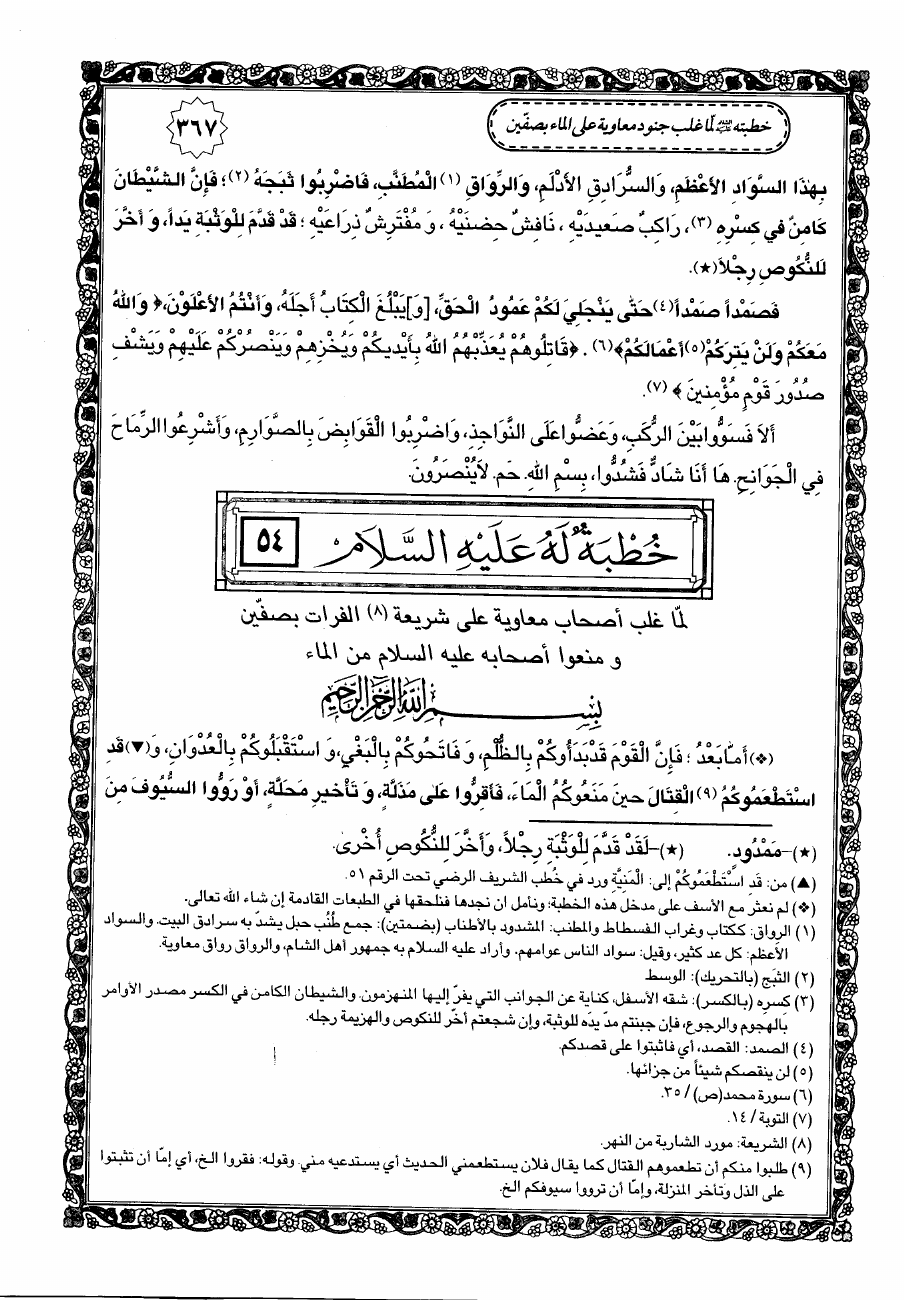 خطبته عليه السلام لمّا غلب جنود معاوية على الماء بصفّين
٣٦٧
بِهٰذَا السَّوَادِ الأَعْظَمِ، وَالسُّرَادِقِ الأَدْلَمِ، وَالرِّوَاقِ (١) الْمُطَنَّبِ، فَاضْرِبُوا ثَبَجَهُ (٢)؛ فَإِنَّ الشَّيْطَانَ
كَامِنٌ في كِسْرِهِ (٣)، رَاكِبٌ صَعيدَيْهِ، نَافِشٌ حِضْنَيْهُ، وَ مُفْتَرِشٌ ذِرَاعَيْهِ؛ قَدْ قَدَّمَ لِلْوَثْبَةِ يَداً، وَ أَخَّرَ
لِلنُّكُوصِ رِجْلاً(★).
فَصَمْداً صَمْداً(٤) حَتّٰى يَنْجَلِيَ لَكُمْ عَمُودُ الْحَقِّ، [وَ]يَبْلُغَ الْكِتَابُ أَجَلَهُ، وَأَنْتُمُ الأَعْلَوْنَ، ﴿ وَاللهُ
مَعَكُمْ وَلَنْ يَتِرَكُمْ(٥) أَعْمَالَكُمْ﴾(٦). ﴿قَاتِلُوهُمْ يُعَذِّبْهُمُ اللهُ بِأَيْديكُمْ وَيُخْزِهِمْ وَيَنْصُرْكُمْ عَلَيْهِمْ وَيَشْفِ
صُدُورَ قَوْمٍ مُؤْمِنينَ ﴾ (٧).
أَلاَ فَسَوُّوا بَيْنَ الرُّكَبِ، وَعَضُّوا عَلَى النَّوَاجِذِ، وَاضْرِبُوا الْقَوَابِضَ بِالصَّوَارِمِ، وَأَشْرِعُوا الرِّمَاحَ
فِي الْجَوَانِحِ. هَا أَنَا شَادٌّ فَشُدُّوا، بِسْمِ اللهِ. حَم. لاَيُنْصَرُونَ.
خُطْبَةٌ لَهُ عَلَيْهِ السَّلاَم
٥٤
لمّا غلب أصحاب معاوية على شريعة (٨) الفرات بصفّين
و منعوا أصحابه عليه السلام من الماء
بِسْمِ اللهِ الرَّحْمٰنِ الرَّحِيمِ
(❖) أَمّا بَعْدُ؛ فَإِنَّ الْقَوْمَ قَدْ بَدَأُوكُمْ بِالظُّلْمِ، وَ فَاتَحُوكُمْ بِالْبَغْيِ، وَ اسْتَقْبَلُوكُمْ بِالْعُدْوَانِ، وَ(▼) قَدِ
اسْتَطْعَمُوكُمُ (٩) الْقِتَالَ حينَ مَنَعُوكُمُ الْمَاءَ، فَأَقِرُّوا عَلىٰ مَذَلَّةٍ، وَ تَأْخيرِ مَحَلَّةٍ، أَوْ رَوُّوا السُّيُوفَ مِنَ
(★)-مَمْدُودٍ. (★)-لَقَدْ قَدَّمَ لِلْوَثْبَةِ رِجْلاً، وَأَخَّرَ لِلنُّكُوصِ أُخْرىٰ.
(▲) من: قَدِ اسْتَطْعَمُوكُمْ إلى: الْمَنِيَّةِ ورد في خُطب الشريف الرضي تحت الرقم ٥١.
(❖) لم نعثر مع الأسف على مدخل هذه الخطبة؛ ونأمل ان نجدها فنلحقها في الطبعات القادمة إن شاء الله تعالى.
(١) الرواق: ككتاب وغراب الفسطاط والمطنب: المشدود بالأطناب (بضمتين): جمع طُنُب حبل يشدّ به سرادق البيت. والسواد
الأعظم: كل عدد كثير، وقيل: سواد الناس عوامهم. وأراد عليه السلام به جمهور أهل الشام، والرواق رواق معاوية.
(٢) الثبج (بالتحريك): الوسط
(٣) كِسره (بالكسر): شقه الأسفل، كناية عن الجوانب التي يفرّ إليها المنهزمون. والشيطان الكامن في الكسر مصدر الأوامر
بالهجوم والرجوع، فإن جبنتم مدّ يده للوثبة، وإن شجعتم أخّر للنكوص والهزيمة رجله.
(٤) الصمد: القصد، أي فاثبتوا على قصدكم.
(٥) لن ينقصكم شيئاً من جزائها.
(٦) سورة محمد(ص) / ٣٥.
(٧) التوبة / ١٤.
(٨) الشريعة: مورد الشاربة من النهر.
(٩) طلبوا منكم أن تطعموهم القتال كما يقال فلان يستطعمني الحديث أي يستدعيه مني. وقوله: فقروا الخ، أي إمّا أن تثبتوا
على الذل وتأخر المنزلة، وإمّا أن ترووا سيوفكم الخ.